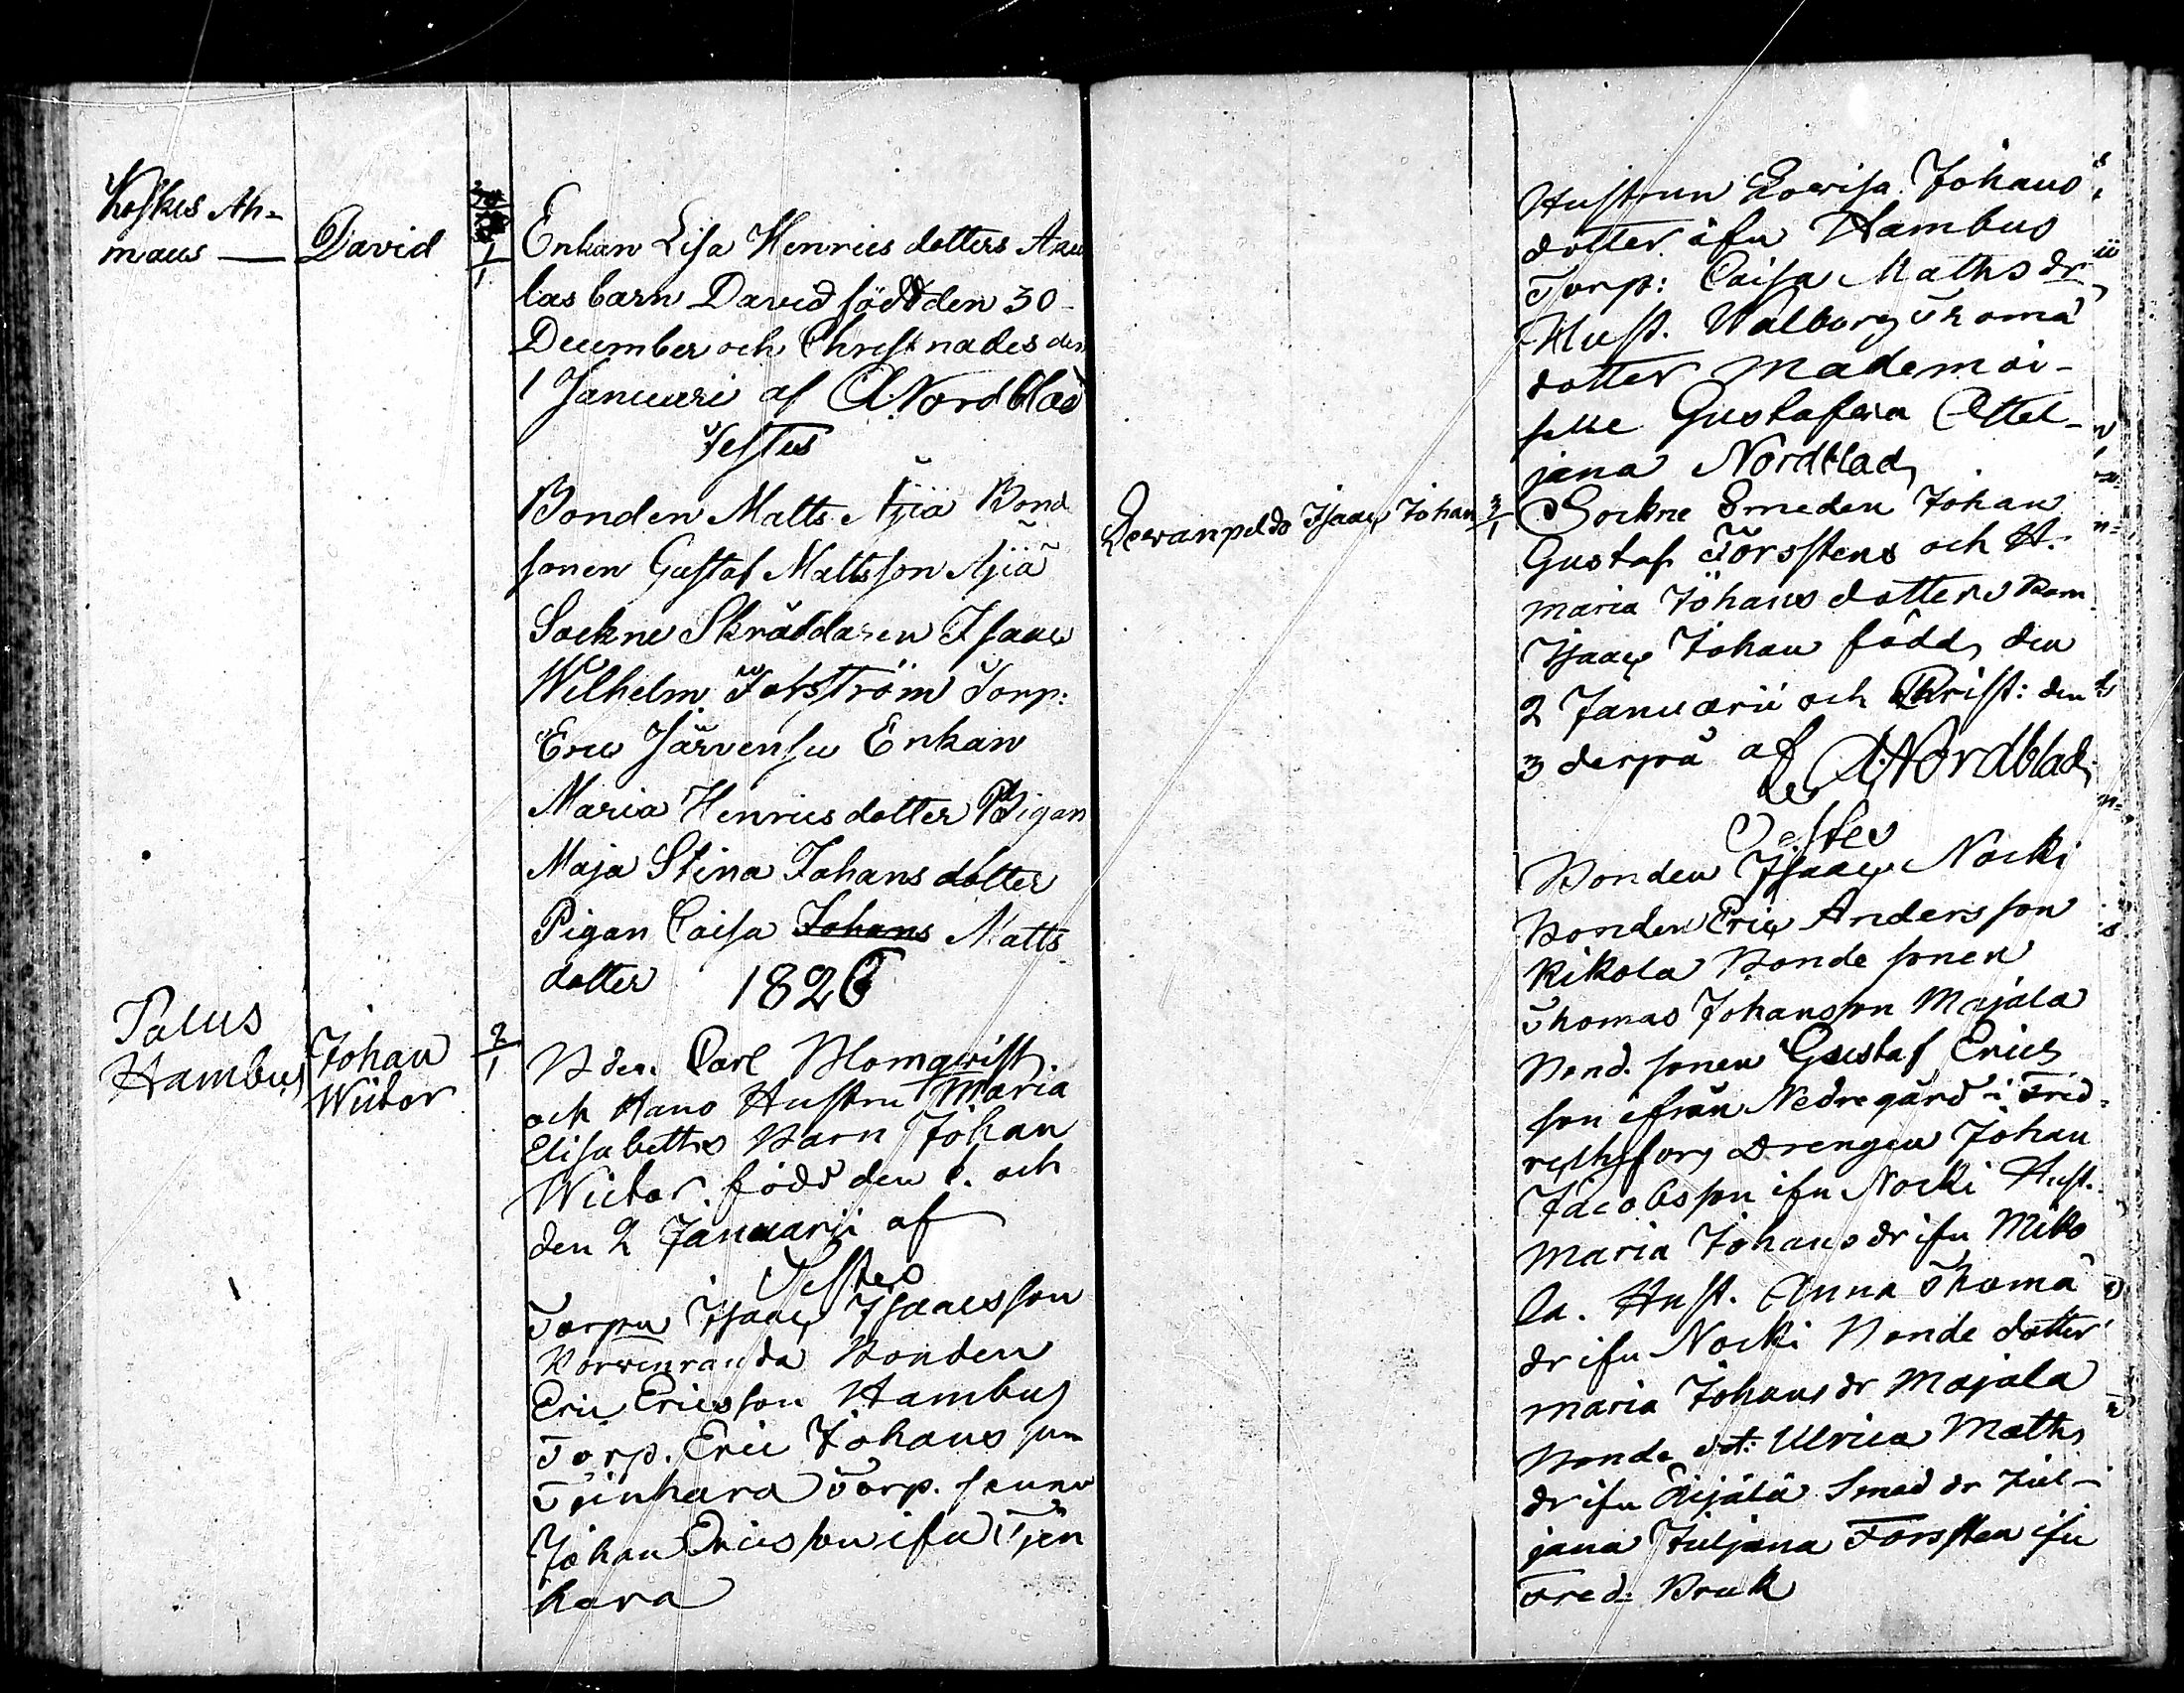 Koskis Ah-
maus — David 1/1
Enkan Lisa Henrics dotters Aku
las barn David född den 30
December och Christnades den
1 Januari af A Nordblad
Testes
Bonden Matts Äjiä Bond
sonen Gustaf Mattsson Äjiä
Sockne Skräddaren Isaac
Wilhelm Torp:
Eric Järvensu Enkan
Maria Henrics dotter Pigan
Maja Stina Johans dotter
Pigan Caisa Johans Matts
dotter 1826
Palus
Hambus Johan
Wictor 2/1
Bden Carl Blomqwist
och Hans Hustru Maria
Elisabeths Barn Johan
Wictor född den 1. och
den 2 Januarii af
Testes
Torpn Isaac Isaacsson
Korwenranda Bonden
Eric Ericsson Hambus
Torp. Eric Johans son
Tjinhara Torp. sonen
Johan Ericsson ifn Tjin
hara
Hustrun Lovisa Johans
dotter ifn Hambus
Torp: Caisa Maths dr
Hust. Walborg Thoma
dotter Mademoi-
selle Gustafva Ottel-
jana Nordblad
Lewanpeldo Isaac Johan 3/1
Sockne Smeden Johan
Gustaf Törsstens och H.
Maria Johans dotters Barn
Isaac Johan född den
2 Januarii och Christ: den
3 derpå af A Nordblad
Testes
Bonden Isaac Nocki
Bonden Eric Andersson
Kikola Bonde sonen
Thomas Johansson Majala
Bond. sonen Gustaf Erics
son ifrån Nedregård i Fred-
richsfors Drengen Johan
Jacobsson ifn Nocki Hust.
Maria Johans dr ifn Miko
la. Hust. Anna Thoma
dr ifn Nocki Bonde dotter
Maria Johans dr Majala
Bonde dot: Ulrica Maths
dr ifn Äijälä Smed dr Jul-
jana Juljana Forssten ifn
Fred: Bruk